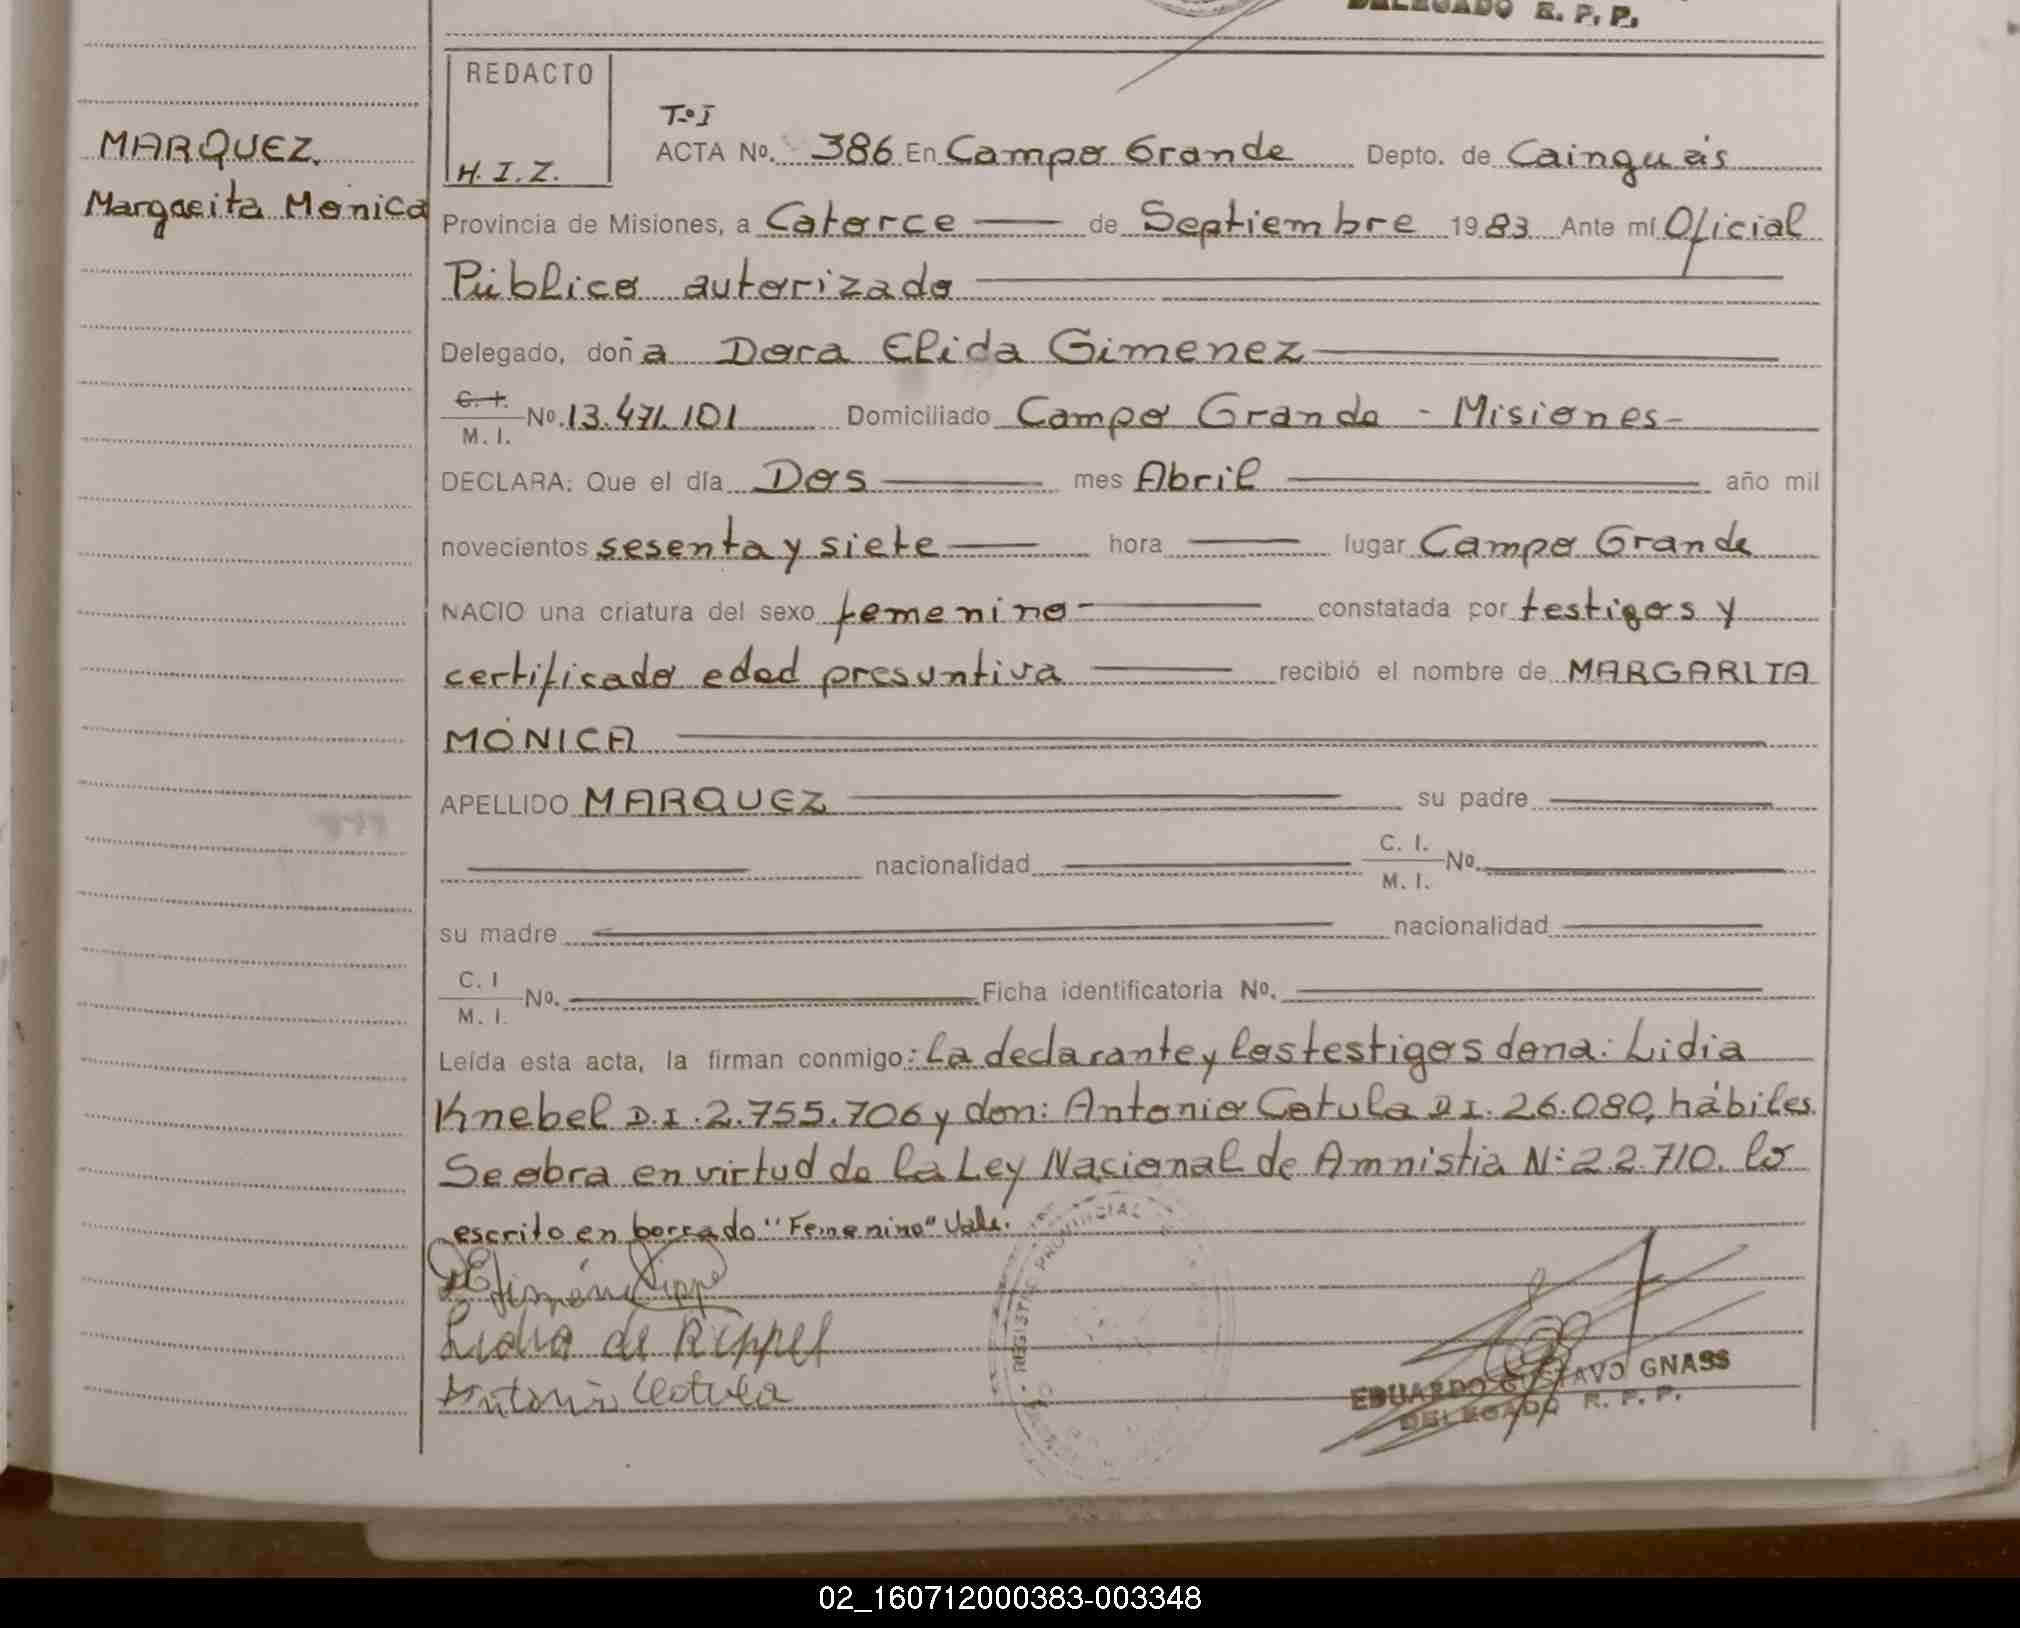 DELEGADO R. P. P.
REDACTO
H. I. Z.
MARQUEZ.
Margarita Mónica
Tº I
ACTA Nº. 386 En Campo Grande Depto. de Cainguás
Provincia de Misiones, a Catorce de Septiembre 1983 Ante mí Oficial
Público autorizado
Delegado, doña Dora Elida Gimenez
C. I.
M. I. Nº. 13.471.101 Domiciliado Campo Grande - Misiones-
DECLARA: Que el día Dos mes Abril año mil
novecientos sesenta y siete hora lugar Campo Grande
NACIO una criatura del sexo femenino constatada por testigos y
certificado edad presuntiva recibió el nombre de MARGARITA
MÓNICA
APELLIDO MARQUEZ su padre
nacionalidad C. I.
M. I. Nº.
su madre nacionalidad
C. I
M. I. Nº. Ficha identificatoria Nº.
Leída esta acta, la firman conmigo: La declarante y los testigos dona: Lidia
Knebel D.I. 2.755.706 y don: Antonio Cotula D I. 26.080, hábiles.
Se obra en virtud de la Ley Nacional de Amnistia N: 22.710. lo
escrito en borrado "Femenino" Vale.
Lidia de Rippel
Antonio Cotula
REGISTRO PROVINCIAL
EDUARDO GUSTAVO GNASS
DELEGADO R. P. P.
02_160712000383-003348